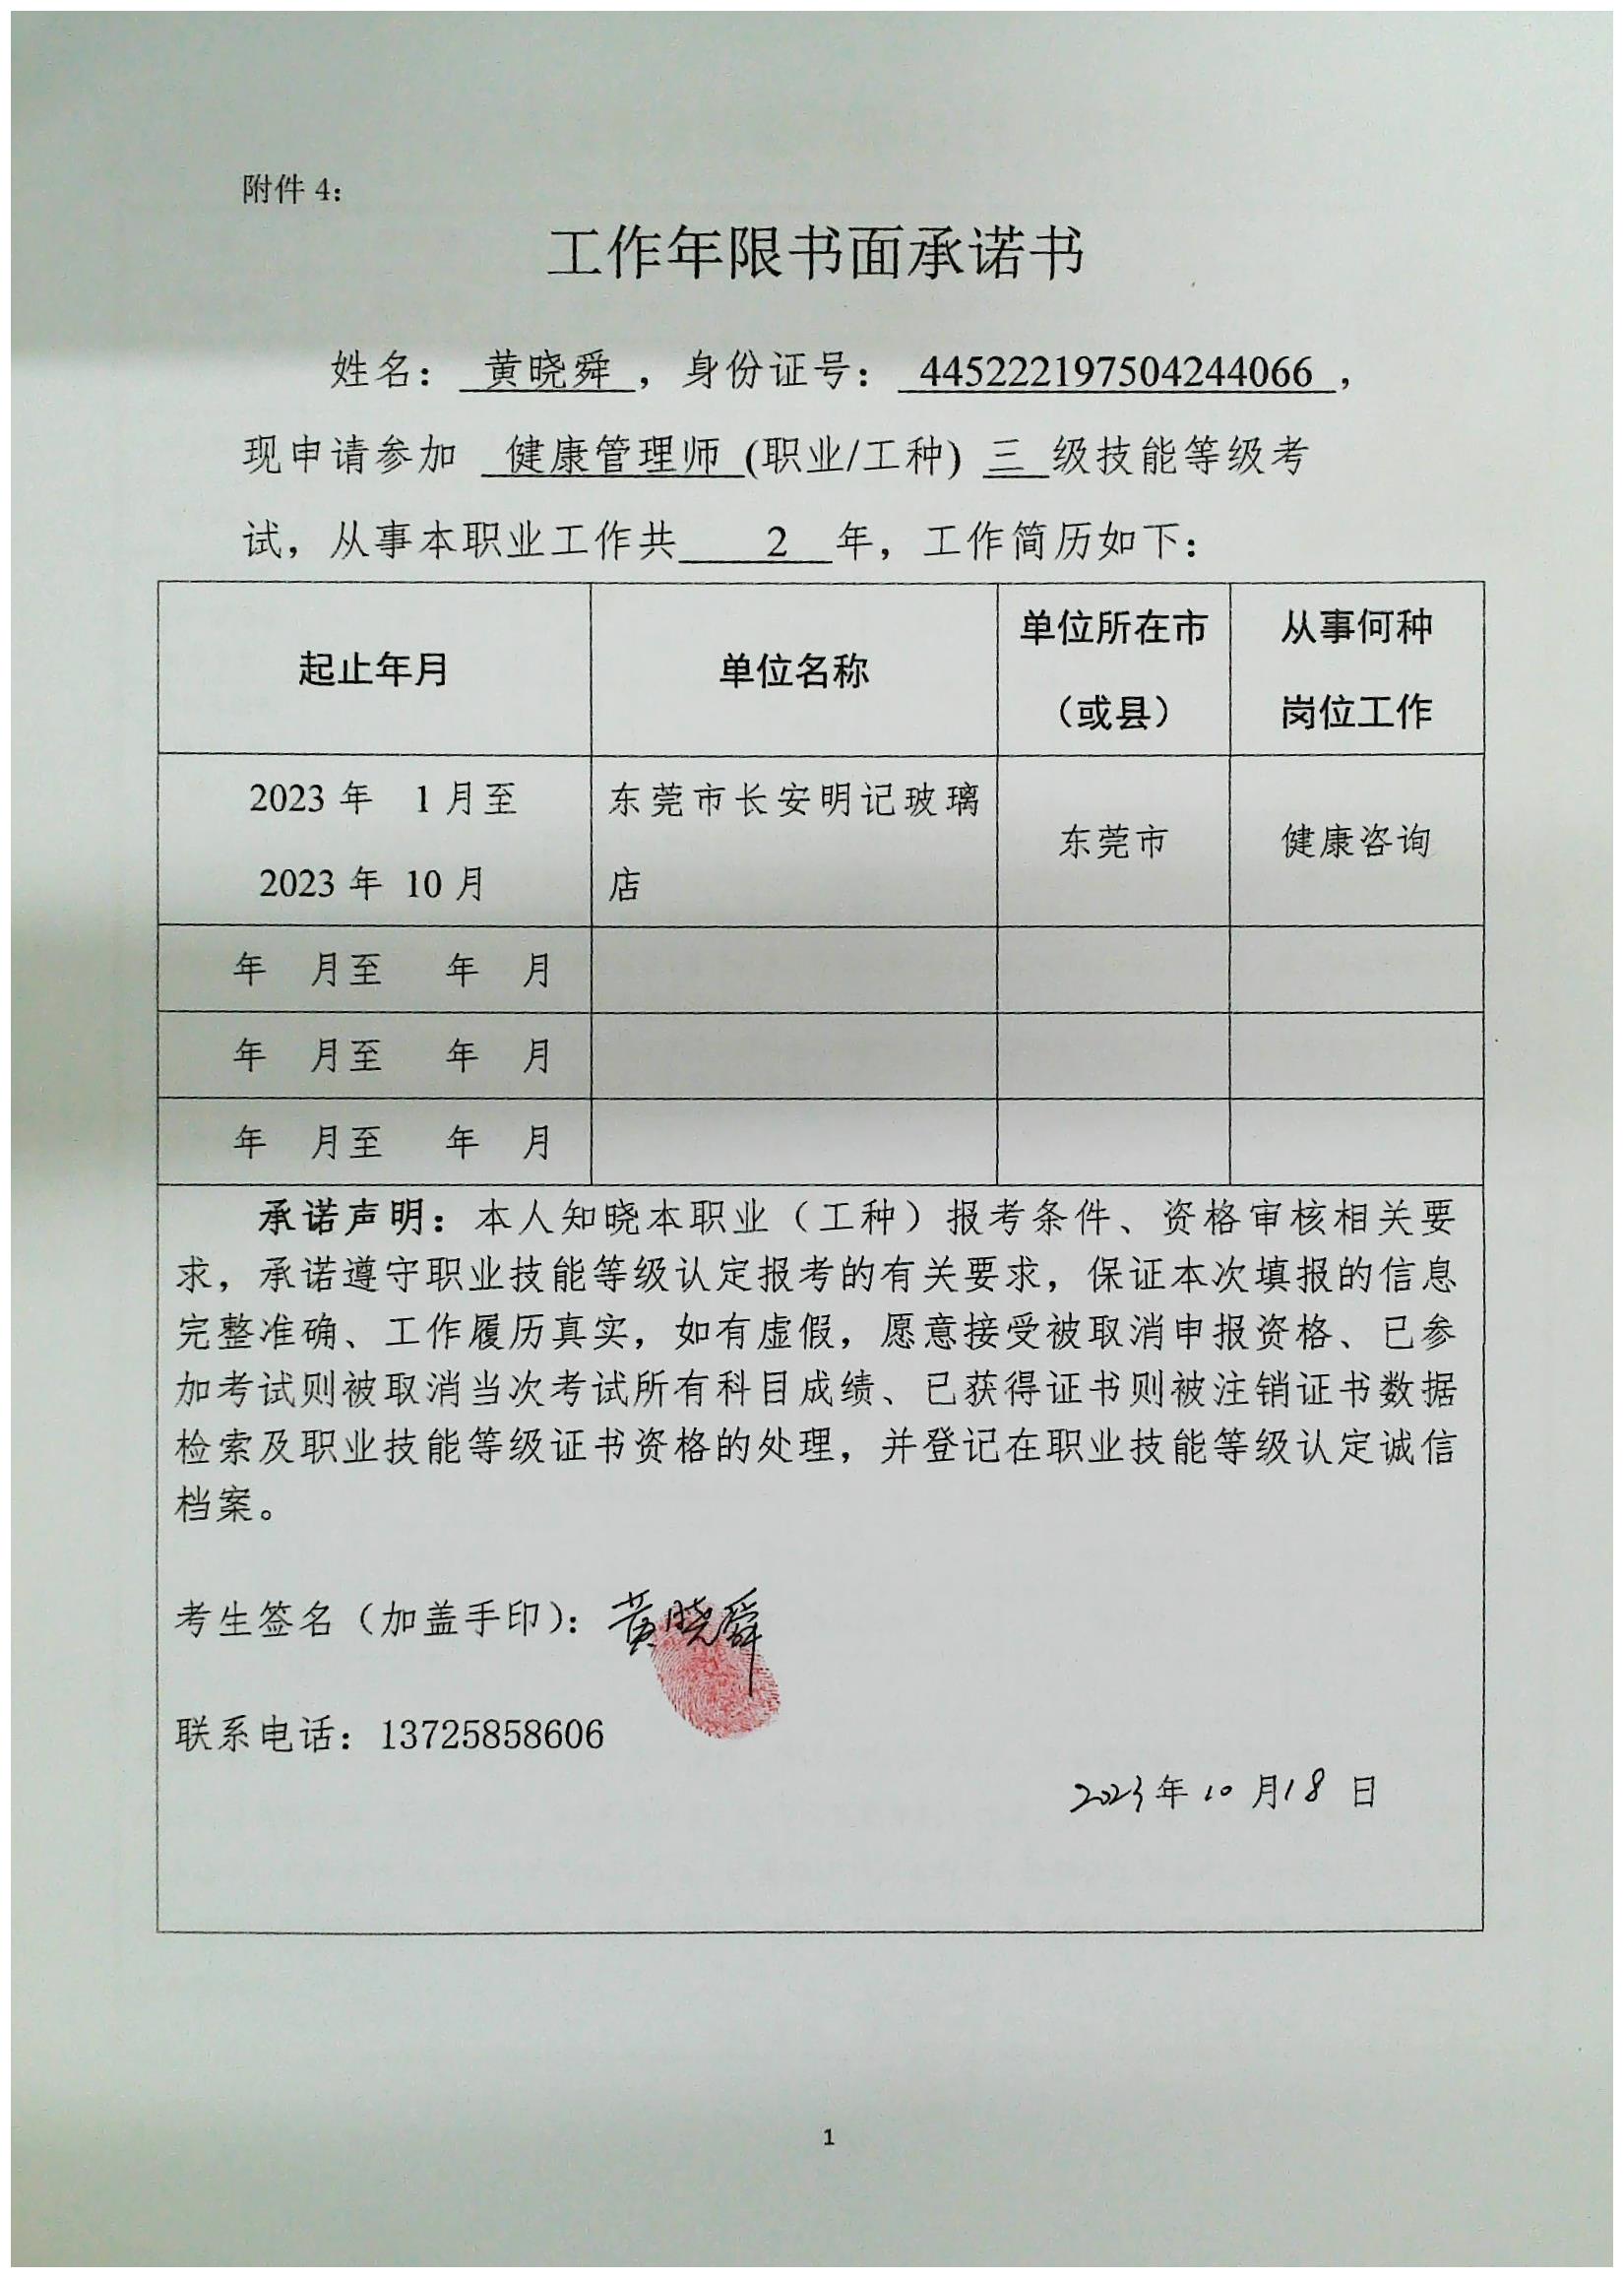 附件 4：
工作年限书面承诺书
姓名： 黄晓舜 ，身份证号： 445222197504244066 ，
现申请参加 健康管理师 (职业/工种) 三 级技能等级考
试，从事本职业工作共 2 年，工作简历如下：
起止年月 单位名称 单位所在市（或县） 从事何种岗位工作
2023 年 1 月至 东莞市长安明记玻璃 东莞市 健康咨询
2023 年 10 月 店
年 月至 年 月
年 月至 年 月
年 月至 年 月
承诺声明：本人知晓本职业（工种）报考条件、资格审核相关要
求，承诺遵守职业技能等级认定报考的有关要求，保证本次填报的信息
完整准确、工作履历真实，如有虚假，愿意接受被取消申报资格、已参
加考试则被取消当次考试所有科目成绩、已获得证书则被注销证书数据
检索及职业技能等级证书资格的处理，并登记在职业技能等级认定诚信
档案。
考生签名（加盖手印）：黄晓舜
联系电话：13725858606
2023年 10 月 18 日
1